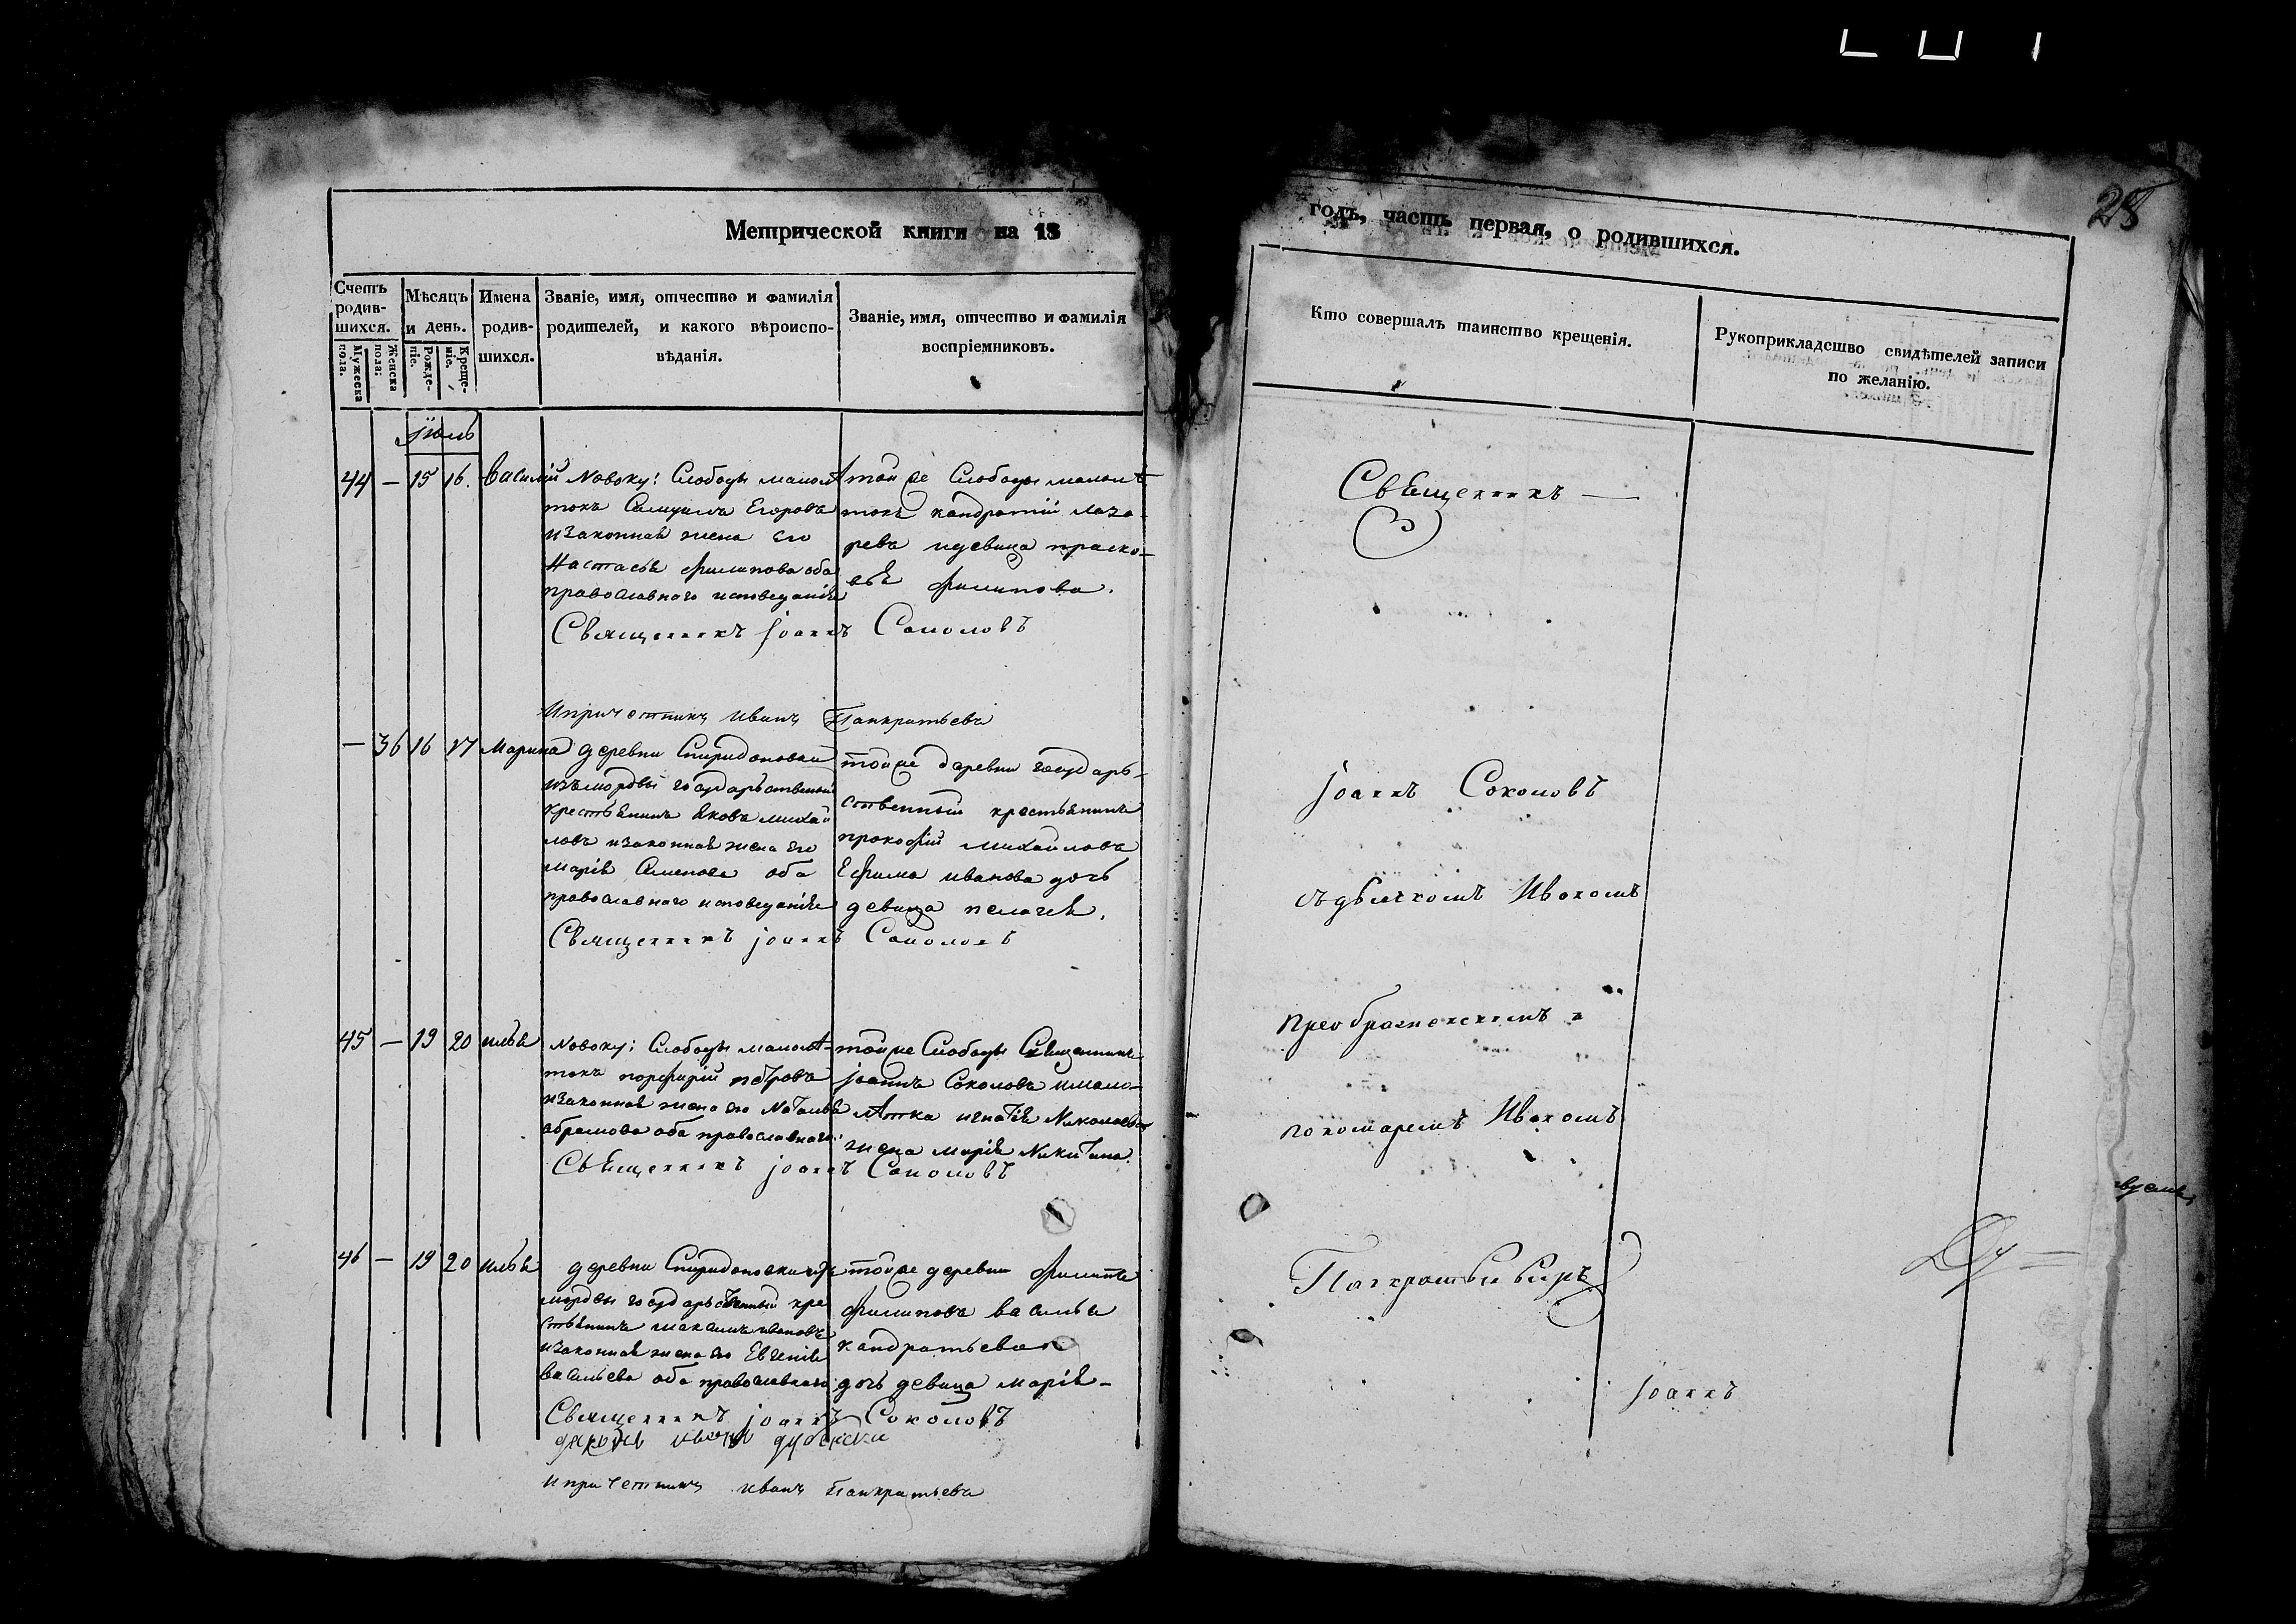 28
Метрической книги на 18
годъ, часть первая, о родившихся.
Счетъ родив-шихся.
Мужеска пола.
Женска пола.
Мѣсяцъ и день.
Рожде-ніе.
Креще-ніе.
Имена родив-шихся.
Званіе, имя, отчество и фамилія
родителей, и какого вѣроиспо-
вѣданія.
Званіе, имя, отчество и фамилія
воспріемниковъ.
Кто совершалъ таинство крещенія.
Рукоприкладство свидѣтелей записи
по желанію.
Іюль
44 — 15 16. Василій
Новоку: Слободы малолѣ
токъ Самуилъ Егоровъ
изаконная жена его
Настасья филипова оба
православнаго исповеданія
тойже Слободы малолѣ
токъ кандратій лаза-
ревъ идевица праско-
вья филипова.
Священникъ Іоаннъ Соколовъ
Ипричетникъ иванъ Панкратьевъ
— 36 16 17 Марина
деревни Спиридоновки
изъмордвы государственный
крестьянинъ яковъ михай
ловъ изаконная жена его
марія Семенова оба
православнаго исповеданія
тойже деревни государь-
ственный крестьянинъ
прокофій михайловъ
Ефима иванова дочь
девица пелагея.
Священникъ Іоаннъ Соколовъ
45 — 19 20 илья
Новоку: Слободы малолѣ-
токъ порфирій петровъ
изаконная жена его Наталья
абрамова оба православнаго:
тойже Слободы Священникъ
Іоаннъ Соколовъ имало-
лѣтка игнатія Николаева
жена марія Никитина.
Священникъ Іоаннъ Соколовъ
46 — 19 20 илья
деревни Спиридоновки изъ
мордвы государственный кре
стьянинъ максимъ ивановъ
изаконная жена его Евгенія
васильева оба православнаго:
тойже деревни филипъ
филиповъ василья
кандратьева
дочь девица марія-
Священникъ Іоаннъ Соколовъ
Ипричетникъ иванъ Панкратьевъ
Священникъ —
Іоаннъ Соколовъ
съдьячкомъ Иваномъ
Преображенскимъ и
пономаремъ Иваномъ
Іоаннъ